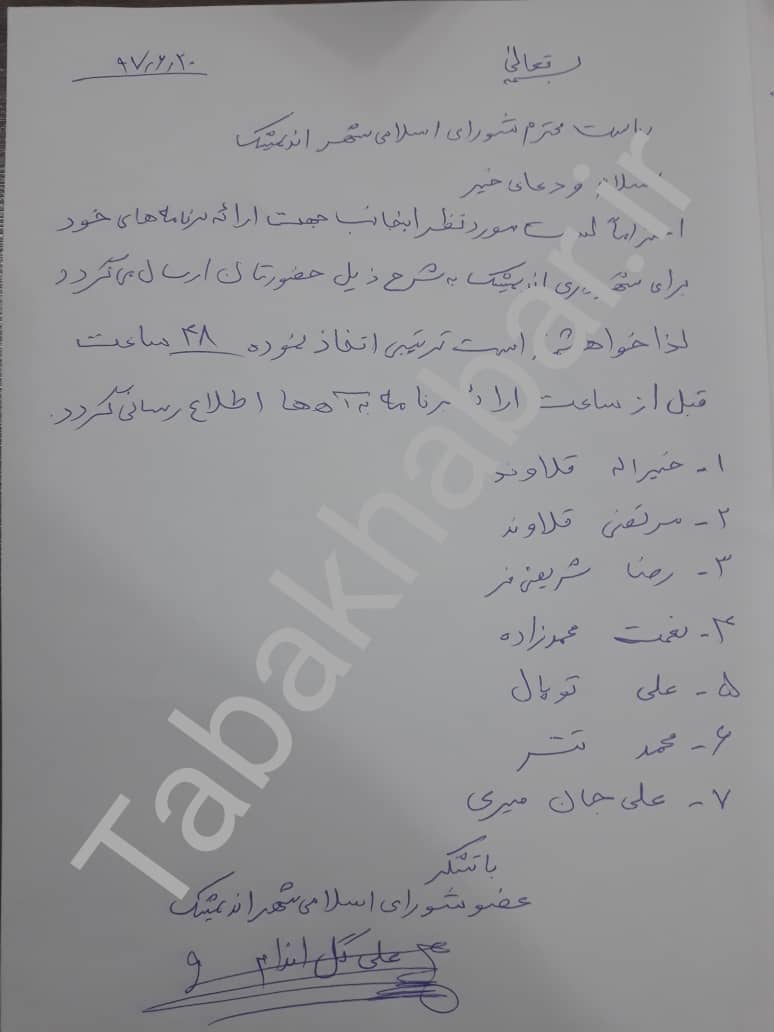 بسمه تعالی
۹۷،۶،۲۰
ریاست محترم شورای اسلامی شهر اندیمشک
سلام و دعای خیر
احتراماً لیست مورد نظر اینجانب جهت ارائه برنامه‌های خود
برای شهرداری اندیمشک به شرح ذیل حضورتان ارسال می‌گردد
لذا خواهشمند است ترتیبی اتخاذ نموده ۴۸ ساعت
قبل از ساعت ارائه برنامه به آن‌ها اطلاع رسانی گردد.
۱- خیراله قلاوند
۲- مرتضی قلاوند
۳- رضا شریفی فر
۴- نعمت محمدزاده
۵- علی توپال
۶- محمد تتر
۷- علی جان میری
با تشکر
عضو شورای اسلامی شهر اندیمشک
علی گل اندام
Tabakhabar.ir